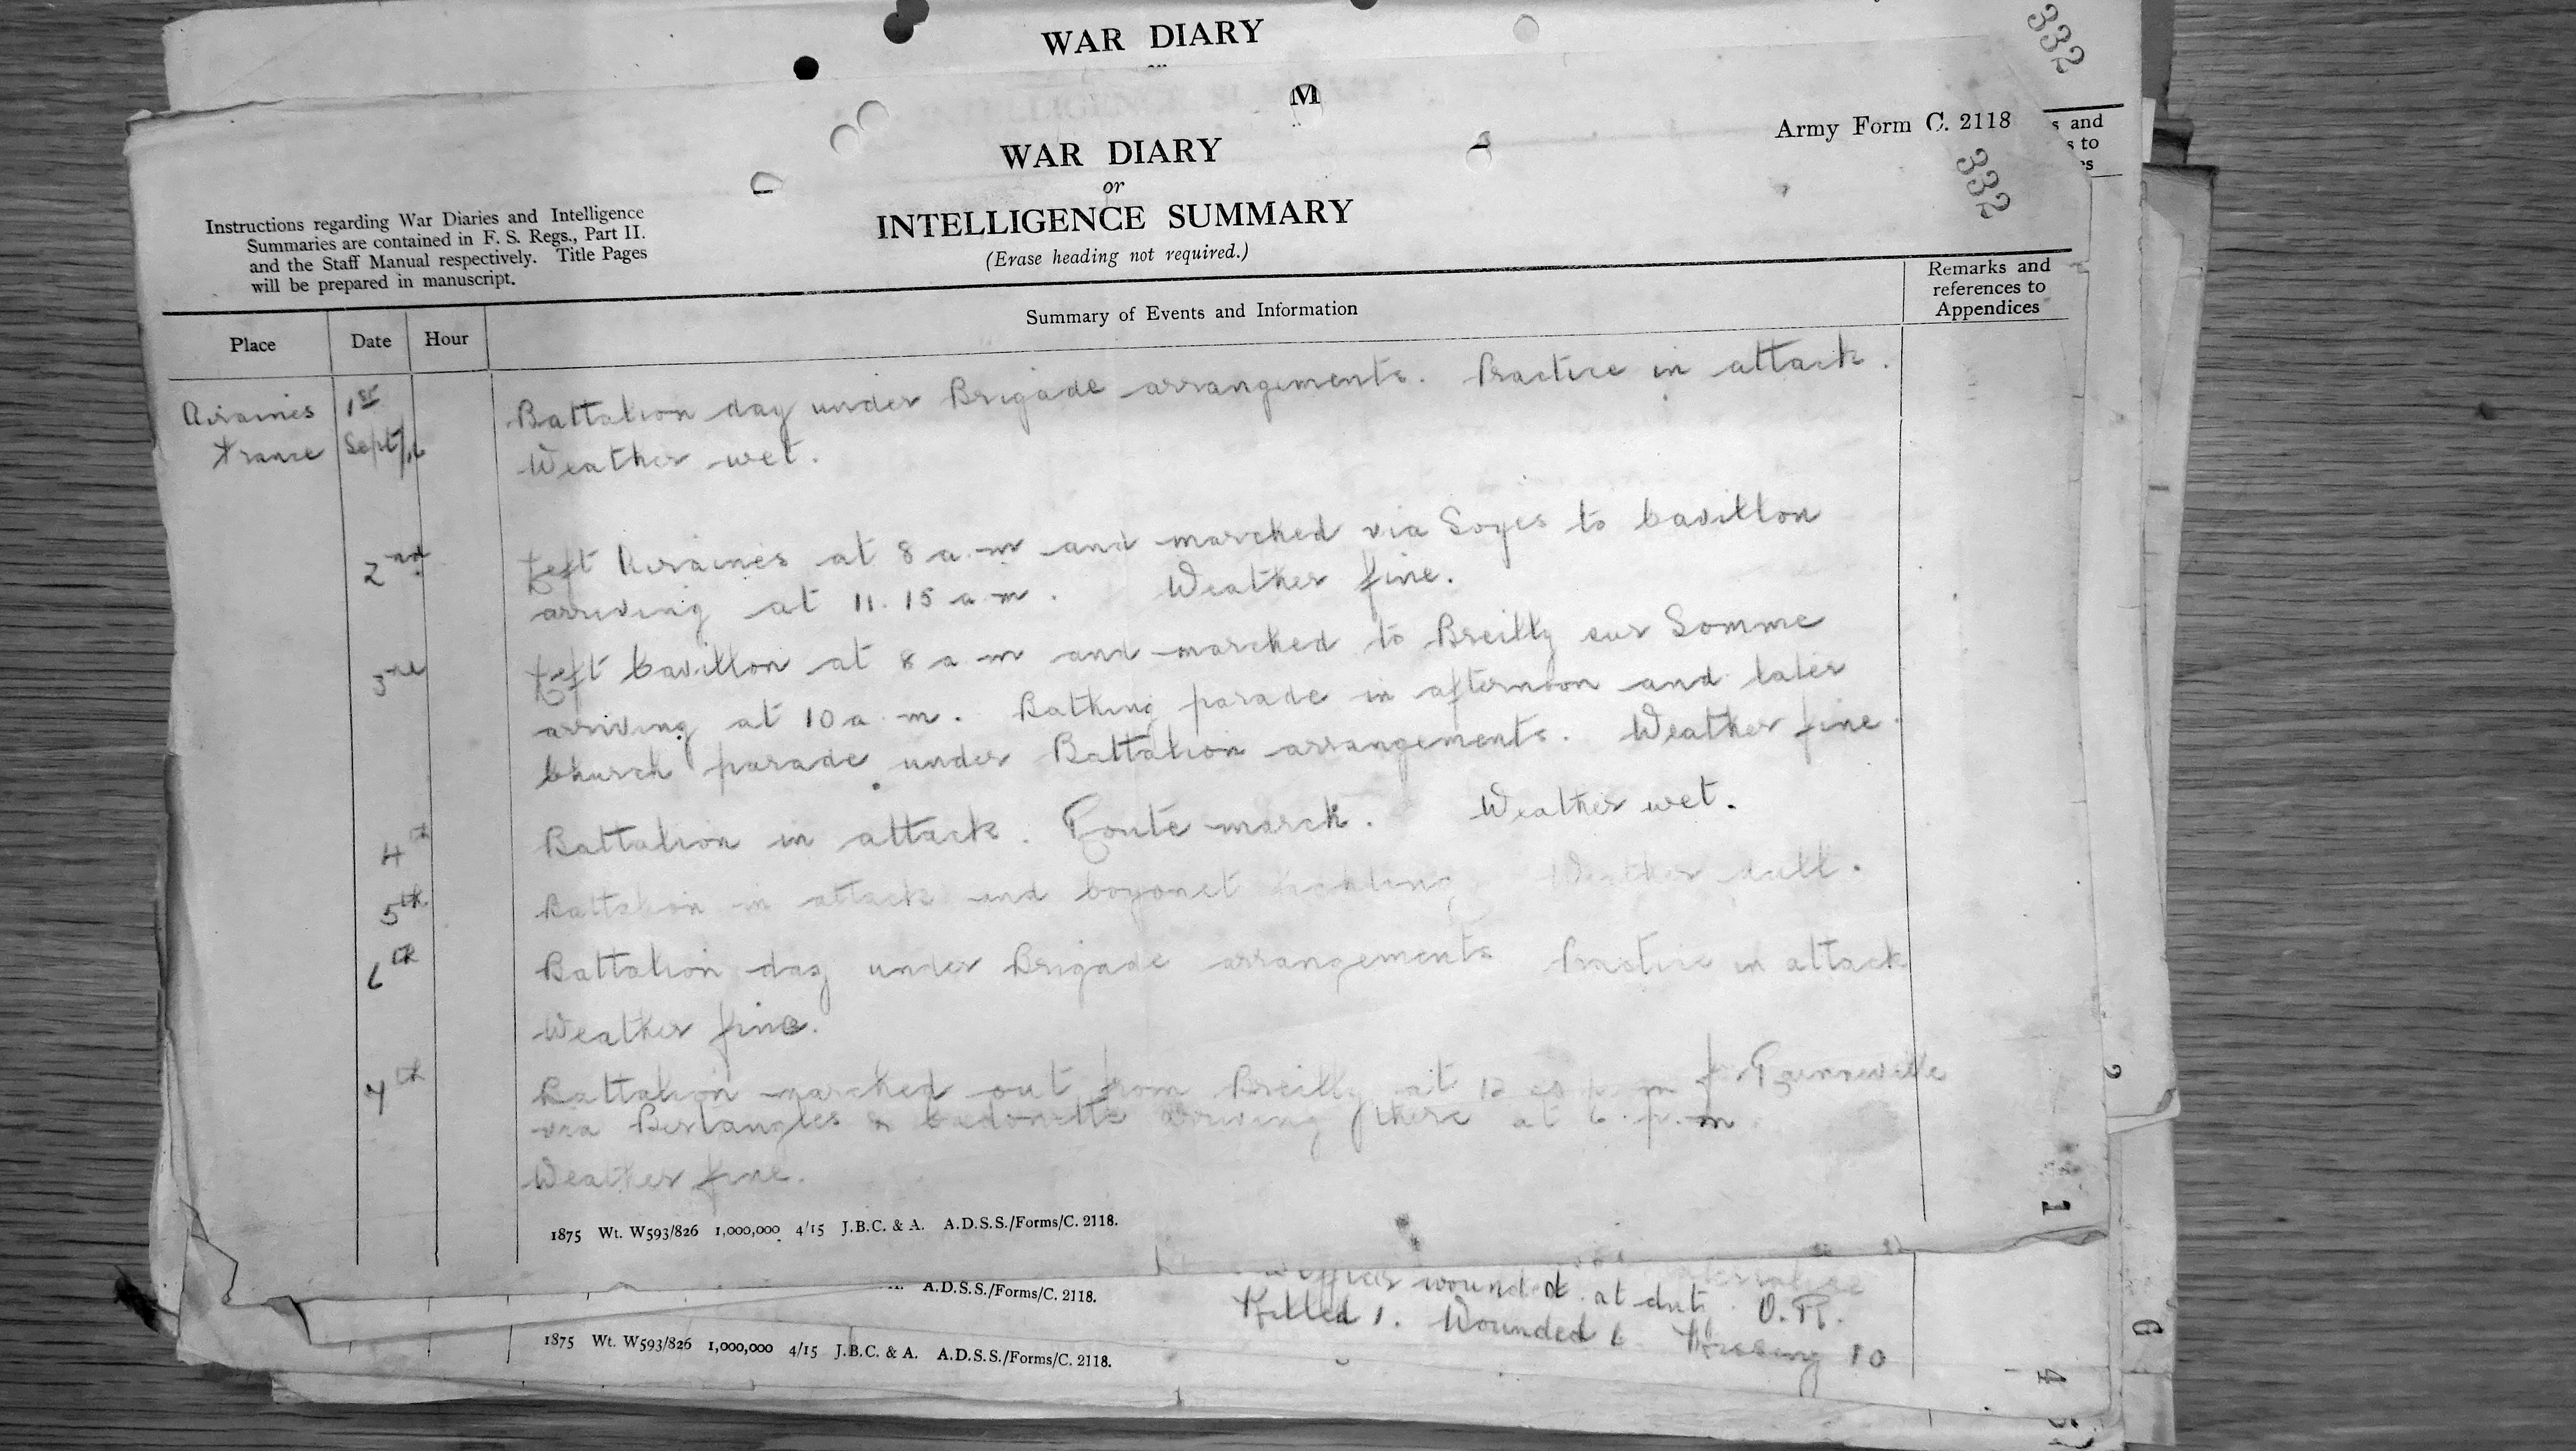 WAR DIARY
332
M
Army Form C. 2118
s and
s to
es
WAR DIARY
or
INTELLIGENCE SUMMARY
(Erase heading not required.)
332
Instructions regarding War Diaries and Intelligence
Summaries are contained in F. S. Regs., Part II.
and the Staff Manual respectively. Title Pages
will be prepared in manuscript.
Place Date Hour Summary of Events and Information Remarks and
references to
Appendices
Airaines 1st Battalion day under Brigade arrangements. Practice in attack.
France Sept/16 Weather wet.
2nd Left Airaines at 8 a.m and marched via Soyes to Cavillon
arriving at 11.15 a.m. Weather fine.
3rd Left Cavillon at 8 a m and marched to Breilly sur Somme
arriving at 10 a.m. Bathing parade in afternoon and later
Church parade under Battalion arrangements. Weather fine.
4th Battalion in attack. Route march. Weather wet.
5th Battalion in attack and bayonet fighting Weather dull.
6th Battalion day under Brigade arrangements Practice in attack
Weather fine.
7th Battalion marched out from Breilly at 12 p.m for
via Bertangles & arriving there at 6.p.m
Weather fine.
1875 Wt. W593/826 1,000,000 4/15 J.B.C. & A. A.D.S.S./Forms/C. 2118.
A.D.S.S./Forms/C. 2118.
wounded at duty O.R.
Killed 1. Wounded 6 Missing 10
1875 Wt. W593/826 1,000,000 4/15 J.B.C. & A. A.D.S.S./Forms/C. 2118.
2
1
6
4
5